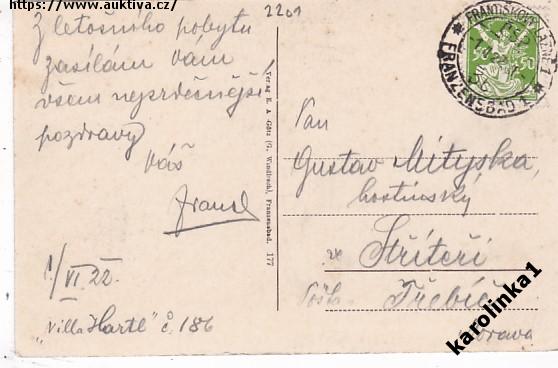 https://www.auktiva.cz/
2201
Z letošního pobytu
zasílám Vám
všem nejsrdečnější
pozdravy
Váš
1/VI. 22.
„Villa Hartl" č. 186
Verlag E. A. Götz (G. Windisch), Franzensbad. 177
FRANTIŠKOVY LÁZNĚ 1
FRANZENSBAD 1
50 50
Pan
Gustav Mityska,
hostinský
ve Stříteři
Pošta Třebíč
Morava
karolinka1